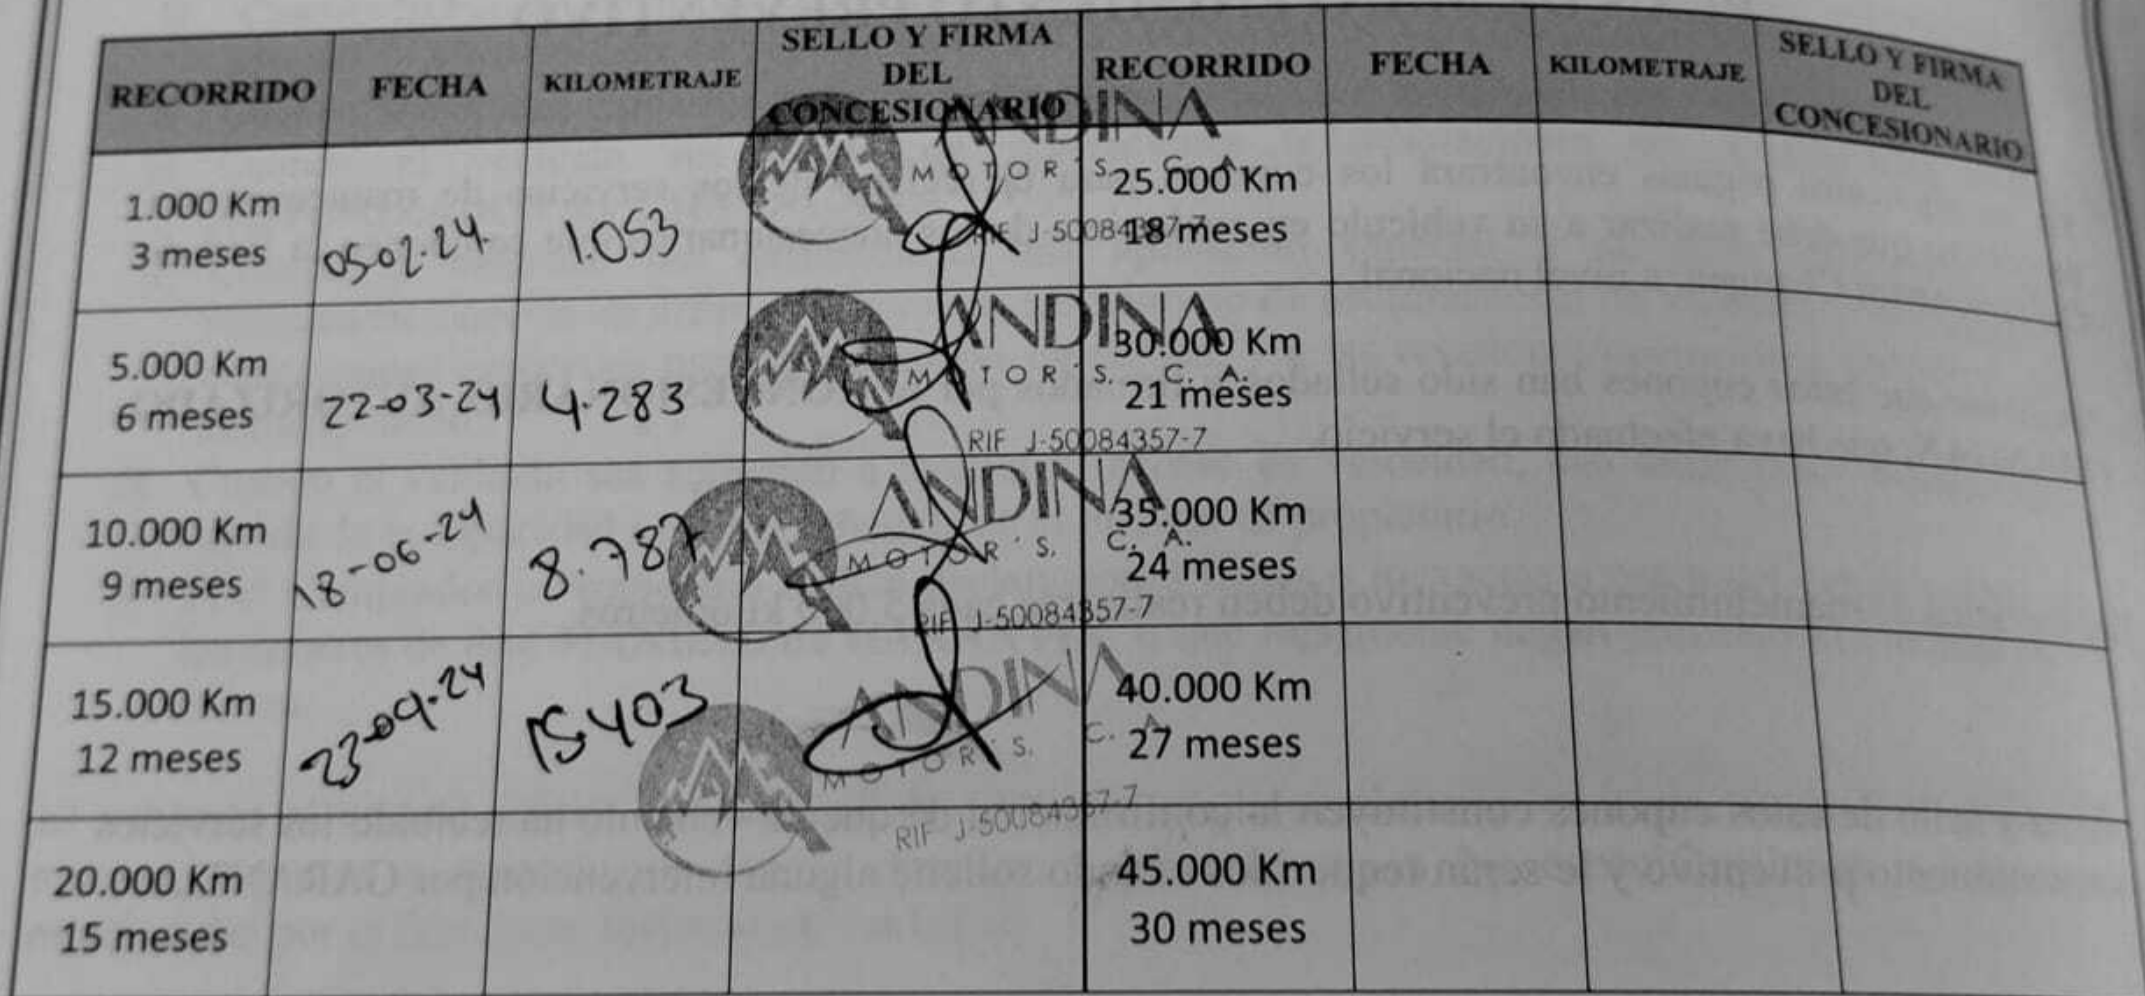 RECORRIDO FECHA KILOMETRAJE SELLO Y FIRMA DEL CONCESIONARIO RECORRIDO FECHA KILOMETRAJE SELLO Y FIRMA DEL CONCESIONARIO
1.000 Km
3 meses
05-02-24
1.053
ANDINA
MOTOR'S C. A.
RIF J-50084357-7
25.000 Km
18 meses
5.000 Km
6 meses
22-03-24
4.283
ANDINA
MOTOR'S. C. A.
RIF J-50084357-7
30.000 Km
21 meses
10.000 Km
9 meses
18-06-24
8.787
ANDINA
MOTOR'S. C. A.
RIF J-50084357-7
35.000 Km
24 meses
15.000 Km
12 meses
23-09-24
15.403
ANDINA
MOTOR'S. C. A.
RIF J-50084357-7
40.000 Km
27 meses
20.000 Km
15 meses
45.000 Km
30 meses